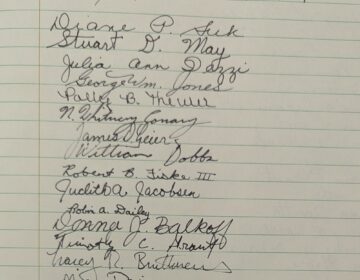 Diane P. Suk
Stuart D. May
Julia Ann Pazzi
George Wm. Jones
B.
N. Whitney Conary
James
William Dobbs
Robert B. Fiske III
Judith A Jacobsen
Robin A. Dailey
Donna J. Balkoff
Timothy C. Grant
Tracey R.